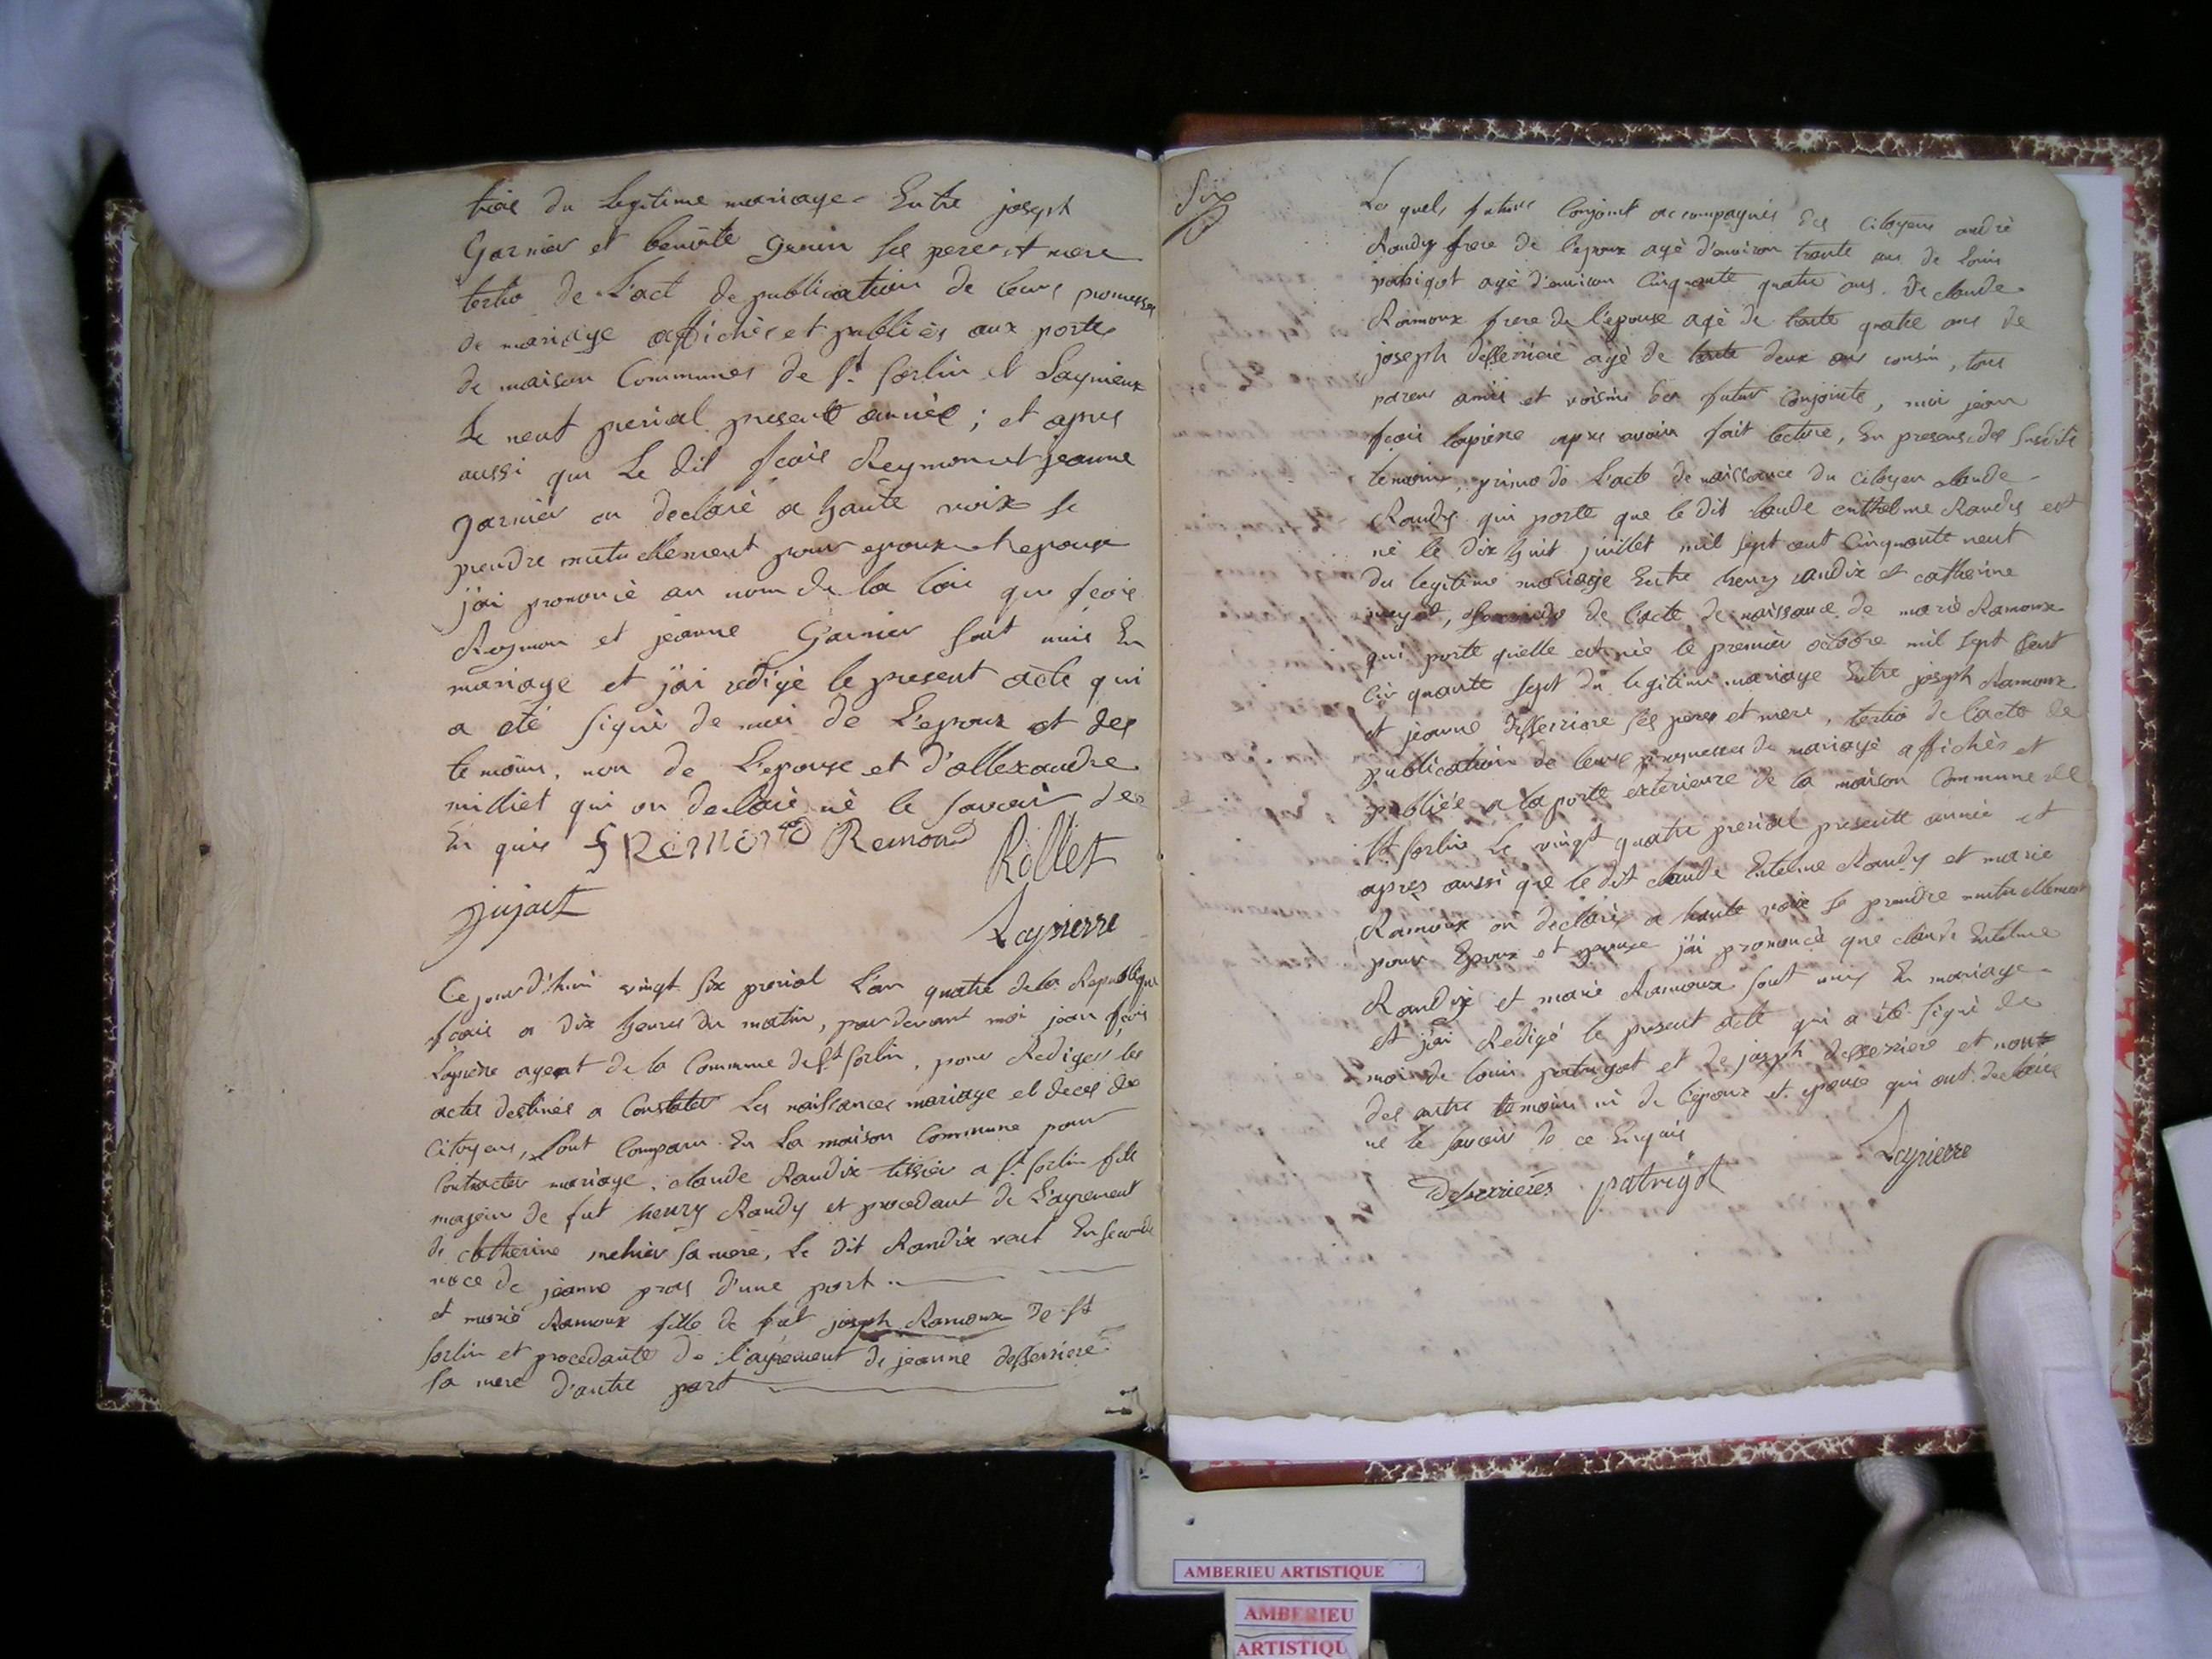 du Legitime mariage Entre joseph
Garnier et benoite Genin ses pere et mere
tertio de L'act de publication de leurs promesses
de mariage affichés et publiés aux portes
de maison Communes de St Sorlin et Lagnieux
Le neuf prerial presente année ; et apres
aussi que Le dit fcois Reymon et jeanne
garnier on declaré a haute voix se
prendre mutuellement pour epoux et epouse
j'ai prononcé au nom de la loi que fcois
Reymon et jeanne Garnier sont unis En
mariage et j'ai redigé le present acte qui
a eté signé de moi de L'epoux et des
temoins, non de L'epouse et d'allexandre
milliet qui on declaré né le savoir de
En quis f Remond Remond
Rollet
jujat
Layrierre
Ce jourd'hui vingt six prerial L'an quatre de la Republique
fcois a dix heures du matin, par devant moi jean fcois
Lapierre agent de la Commune de St Sorlin, pour Rediger les
actes destinés a Constater Les naissances mariage et deces des
Citoyens, sont Comparu En La maison Commune pour
Contracter mariage, claude Randix tissier a St sorlin fils
majeur de fut henry Randy et procedant de L'agrement
de Catherine mehier sa mere, Le dit Randix veuf En seconde
noce de jeanne pros d'une part
et marie Ramoux fille de fut joseph Ramoux de St
sorlin et procedante de l'agrement de jeanne desserriere
sa mere d'autre part
Six
Les quels futurs Conjoint accompagnés des Citoyens andré
Randy frere de l'epoux agé d'environ trante ans de Louis
patrigot agé d'environ Cinquante quatre ans. De claude
Ramoux frere de l'epouse agé de trante quatre ans de
joseph desserriere agé de trante deux ans cousin, tous
parens amis et voisins des futur Conjoints, moi jean
fcois lapierre apres avoir fait lecture, En presens des susdits
temoins, primo de L'acte de naissance du Citoyen claude
Randy qui porte que le dit claude enthelme Randy est
né le dix huit juillet mil sept cent Cinquante neuf
du legitime mariage Entre henry randix et catherine
de l'acte de naissance de marie Ramoux
qui porte quelle est née le premier octobre mil sept Cent
Cinquante sept du legitime mariage Entre joseph Ramoux
et jeanne desserriere ses peres et mere, tertio de l'acte de
publication de leurs promesses de mariage affichés et
publiée a la porte exterieure de la maison Commune de
St sorlin Le vingt quatre prerial presente année et
apres aussi que le dit claude Entelme Randy et marie
Ramoux on declaré a haute voix se prendre mutuellement
pour Epoux et epouse j'ai prononcé que claude Entelme
Randix et marie Ramoux sont unis En mariage
et j'ai Redigé le present acte qui a été signé de
moi de louis patrigot et de joseph desserriere et non
des autres temoins ni de l'epoux et epouse qui ont declaré
ne le savoir de ce Enquis
Layrierre
Desserrieres patrigot
AMBERIEU ARTISTIQUE
AMBERIEU
ARTISTIQU